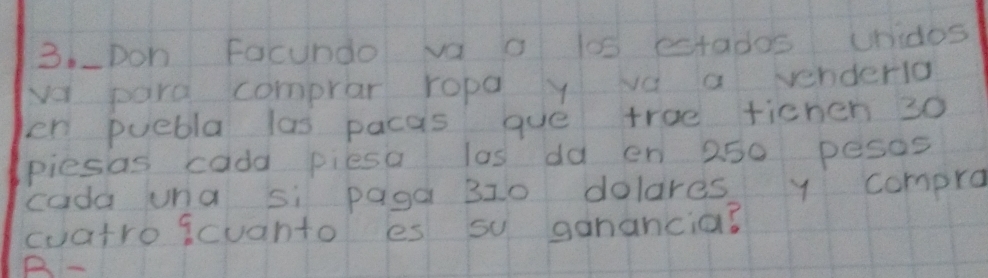 3._ Don Facundo va a los estados unidos
va para comprar ropa y va a venderla
en puebla las pacas que trae tienen 30
piesas cada piesa las da en 250 pesos
cada una si paga 310 dolares y compra
cuatro ¿cuanto es su ganancia?
R-